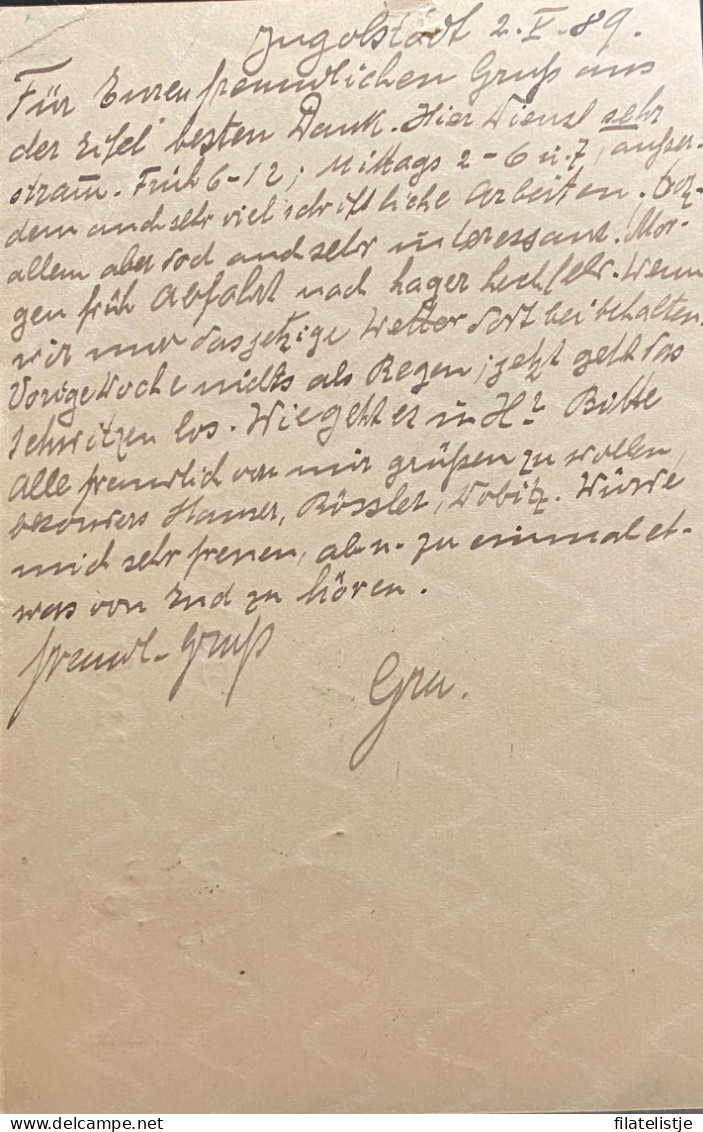 Ingolstadt 2.V.89.
Für Euren freundlichen Gruß aus
der Eifel besten Dank. Hier Dienst sehr
stram. Früh 6-12; Mittags 2-6 u. 7, außer-
dem auch sehr viel schriftliche Arbeiten. Vor-
allem aber doch auch sehr interessant. Mor-
gen früh Abfahrt nach Lager Lechfeld. Wenn
wir nur das jetzige Wetter dort beibehalten.
Vorige Woche nichts als Regen, jetzt geht das
Schwitzen los. Wie geht es in H? Bitte
Alle freundlich von mir grüßen zu wollen,
besonders Hauser, Rössler, Wobitz. Würde
mich sehr freuen, ab u. zu einmal et-
was von Euch zu hören.
freundl. Gruß
filatelistje